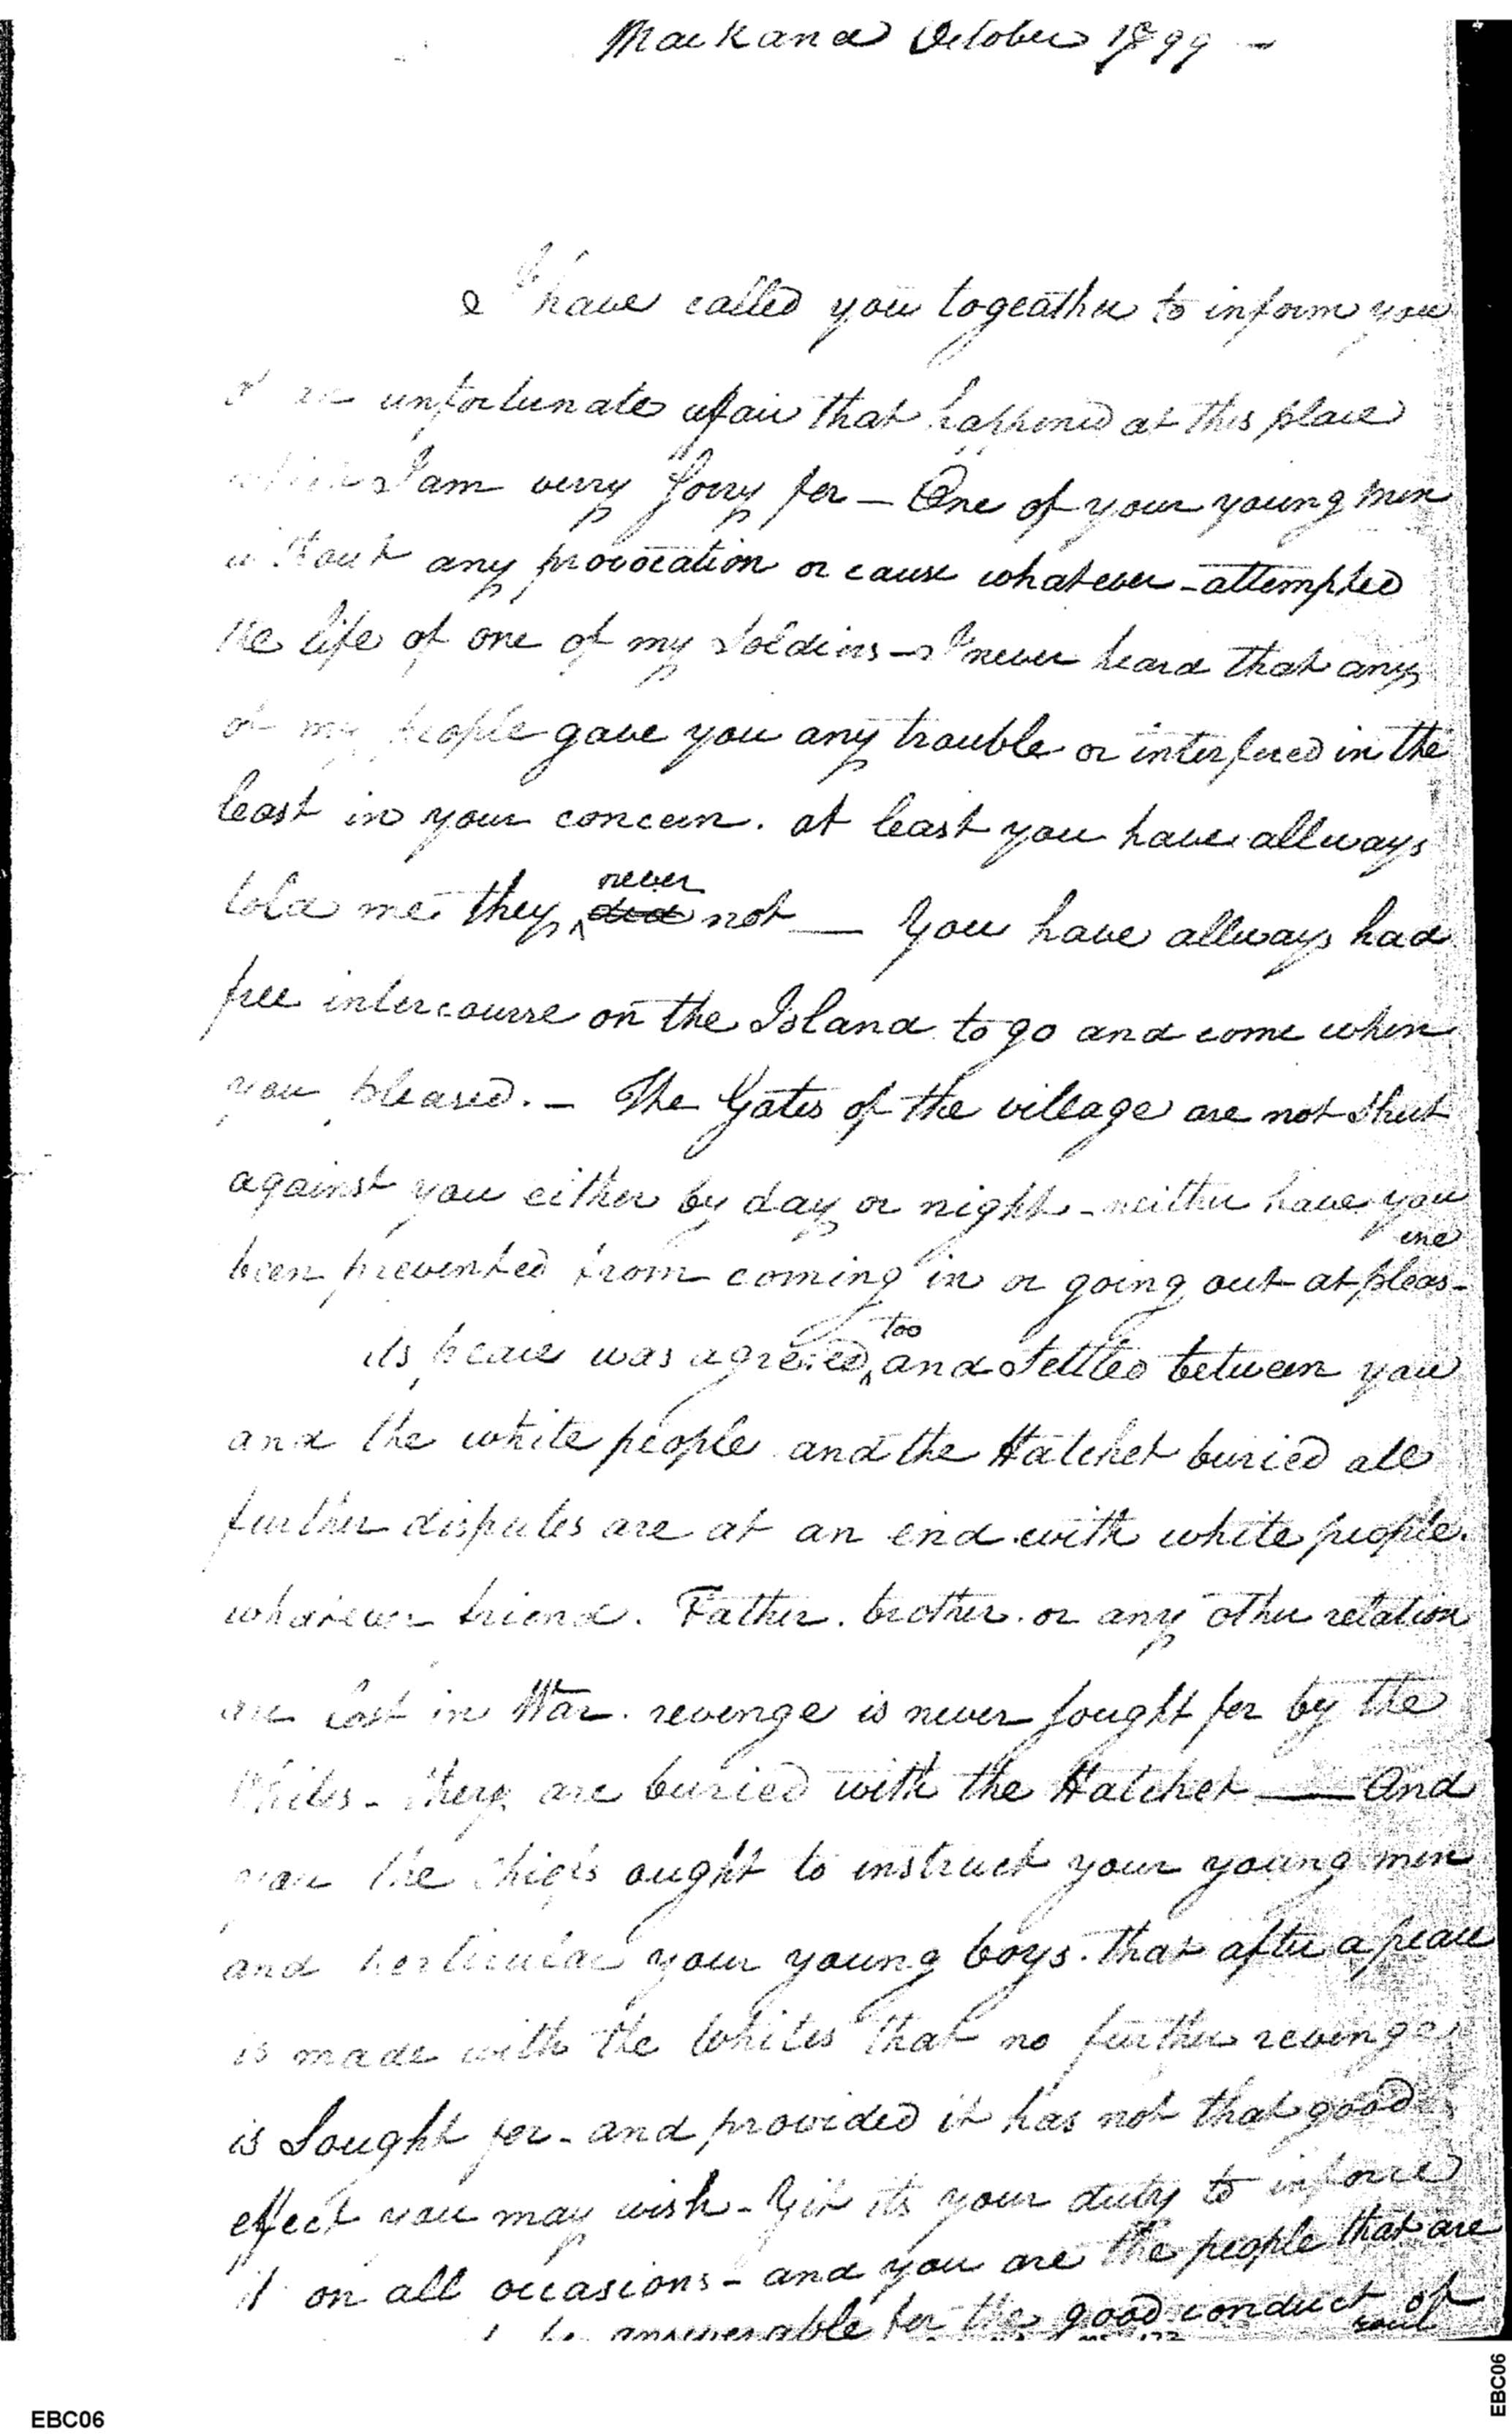 Mackana October 1799 -
I have called you togeather to inform you
of an unfortunate afair that happened at this place
which I am verry Sorry for — One of your young men
without any provocation or cause whatever - attempted
the life of one of my Soldiers - I never heard that any
of my people gave you any trouble or interfered in the
least in your concern. at least you have allways
told me they never did not — You have allways had
free intercourse on the Island to go and come when
you pleased. - The Gates of the village are not Shut
against you either by day or night - neither have you
been prevented from coming in or going out at pleas-
ure
As peace was agreeed too and Settled between you
and the white people and the Hatchet buried all
further disputes are at an end with white people.
whatever friend. Father. brother. or any other relation
are lost in War. revenge is never sought for by the
Whites - they are buried with the Hatchet — And
you the Chiefs ought to instruct your young men
and perticular your young boys. that after a peace
is made with the Whites that no further revenge
is Sought for - and provided it has not that good
effect you may wish - Yit its your duty to inforce
it on all occasions - and you are the people that are
to be answerable for the good conduct of
your
EBC06
EBC06